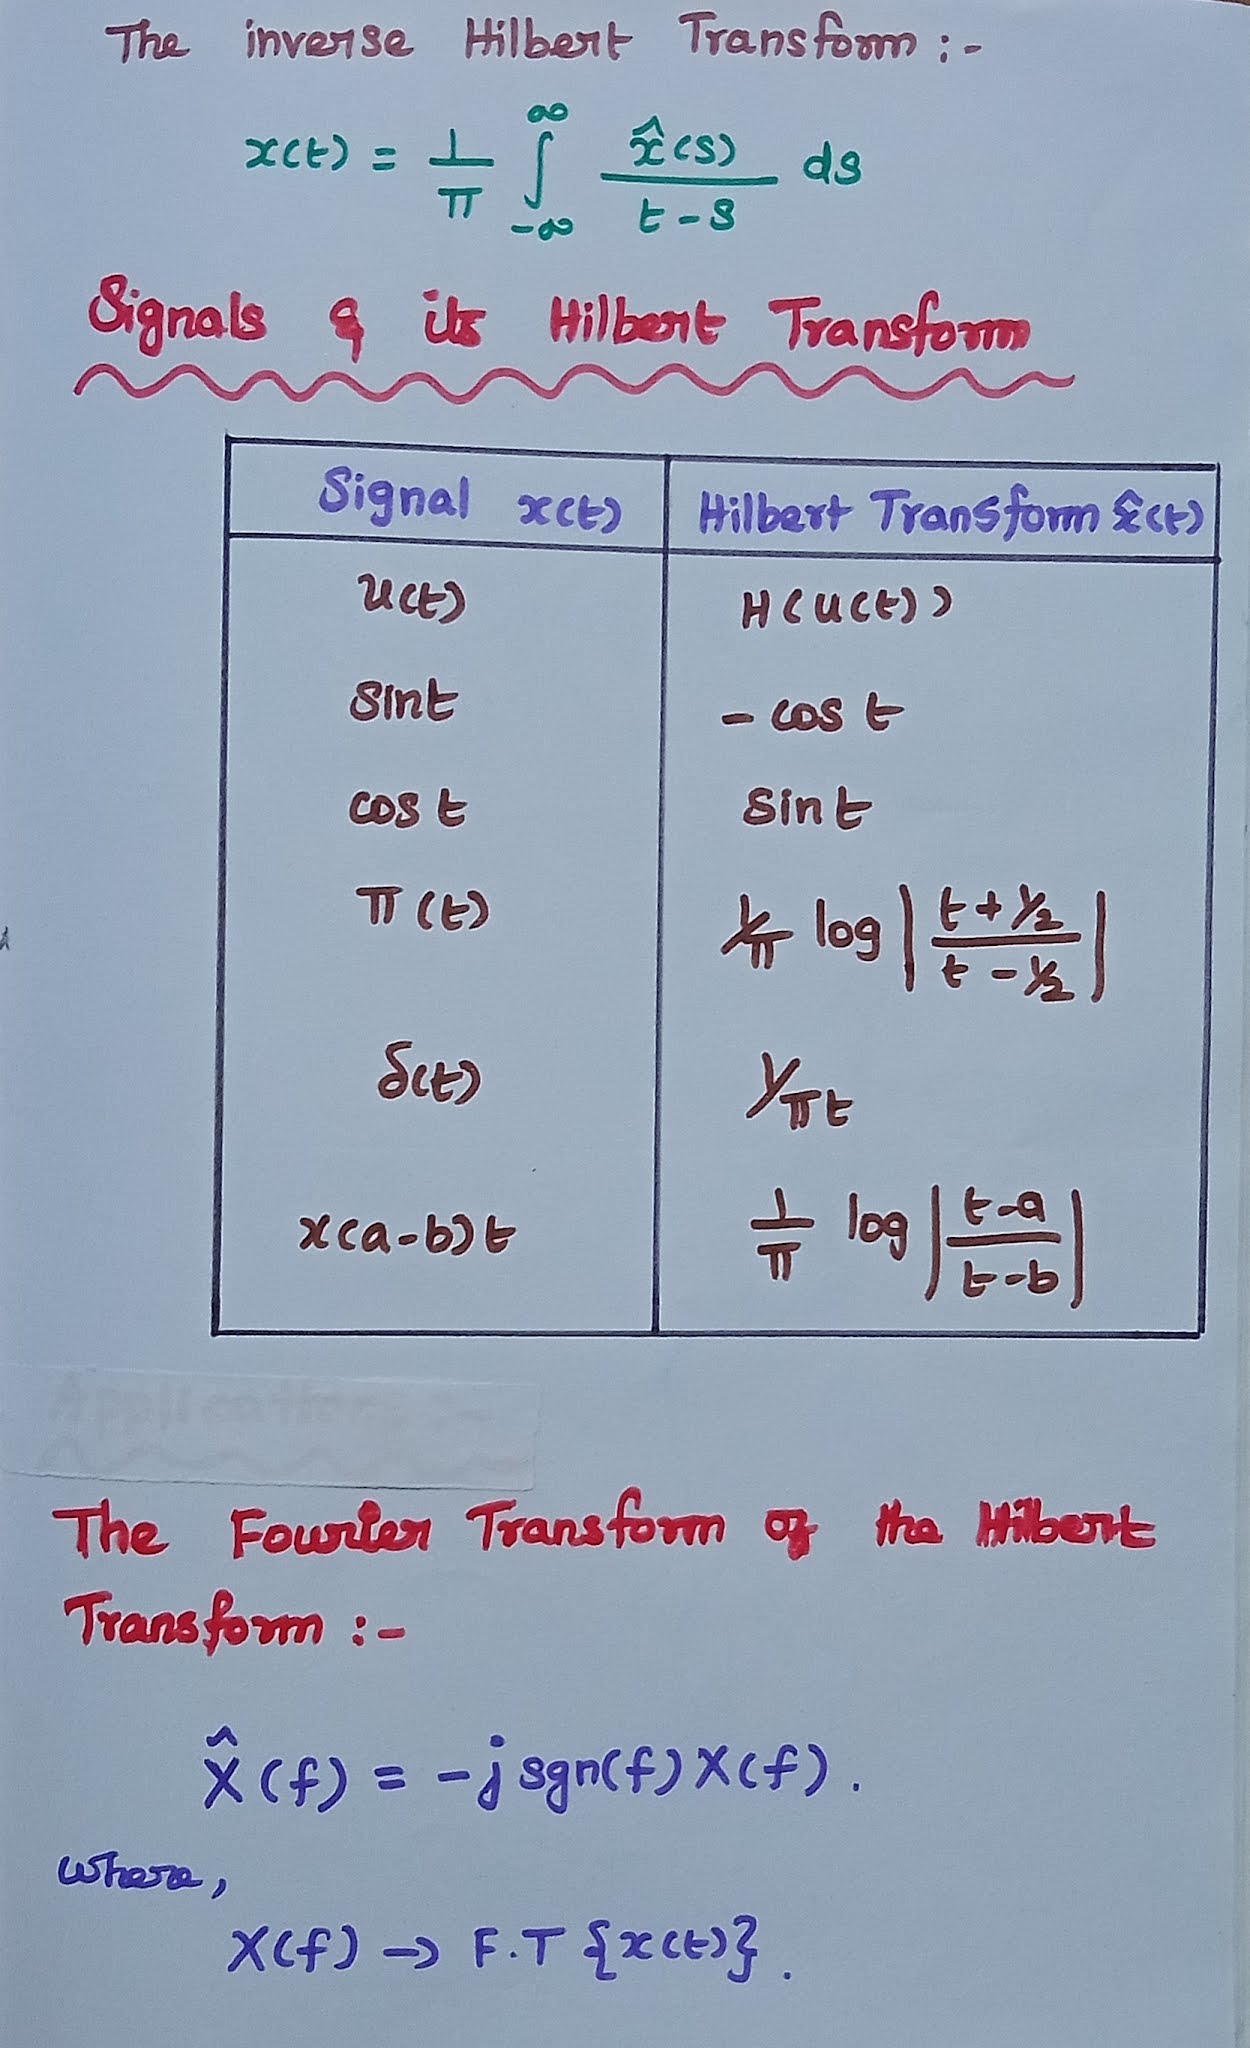 The inverse Hilbert Transform :-
x(t) = 1/π ∫_{-∞}^{∞} x̂(s)/(t-s) ds
Signals & its Hilbert Transform
Signal x(t) | Hilbert Transform x̂(t)
u(t) | H(u(t))
sint | - cos t
cos t | sin t
π(t) | 1/π log |(t + 1/2)/(t - 1/2)|
δ(t) | 1/πt
x(a-b)t | 1/π log |(t-a)/(t-b)|
Applications :-
The Fourier Transform of the Hilbert
Transform :-
X̂(f) = -j sgn(f) X(f).
where,
X(f) → F.T {x(t)}.